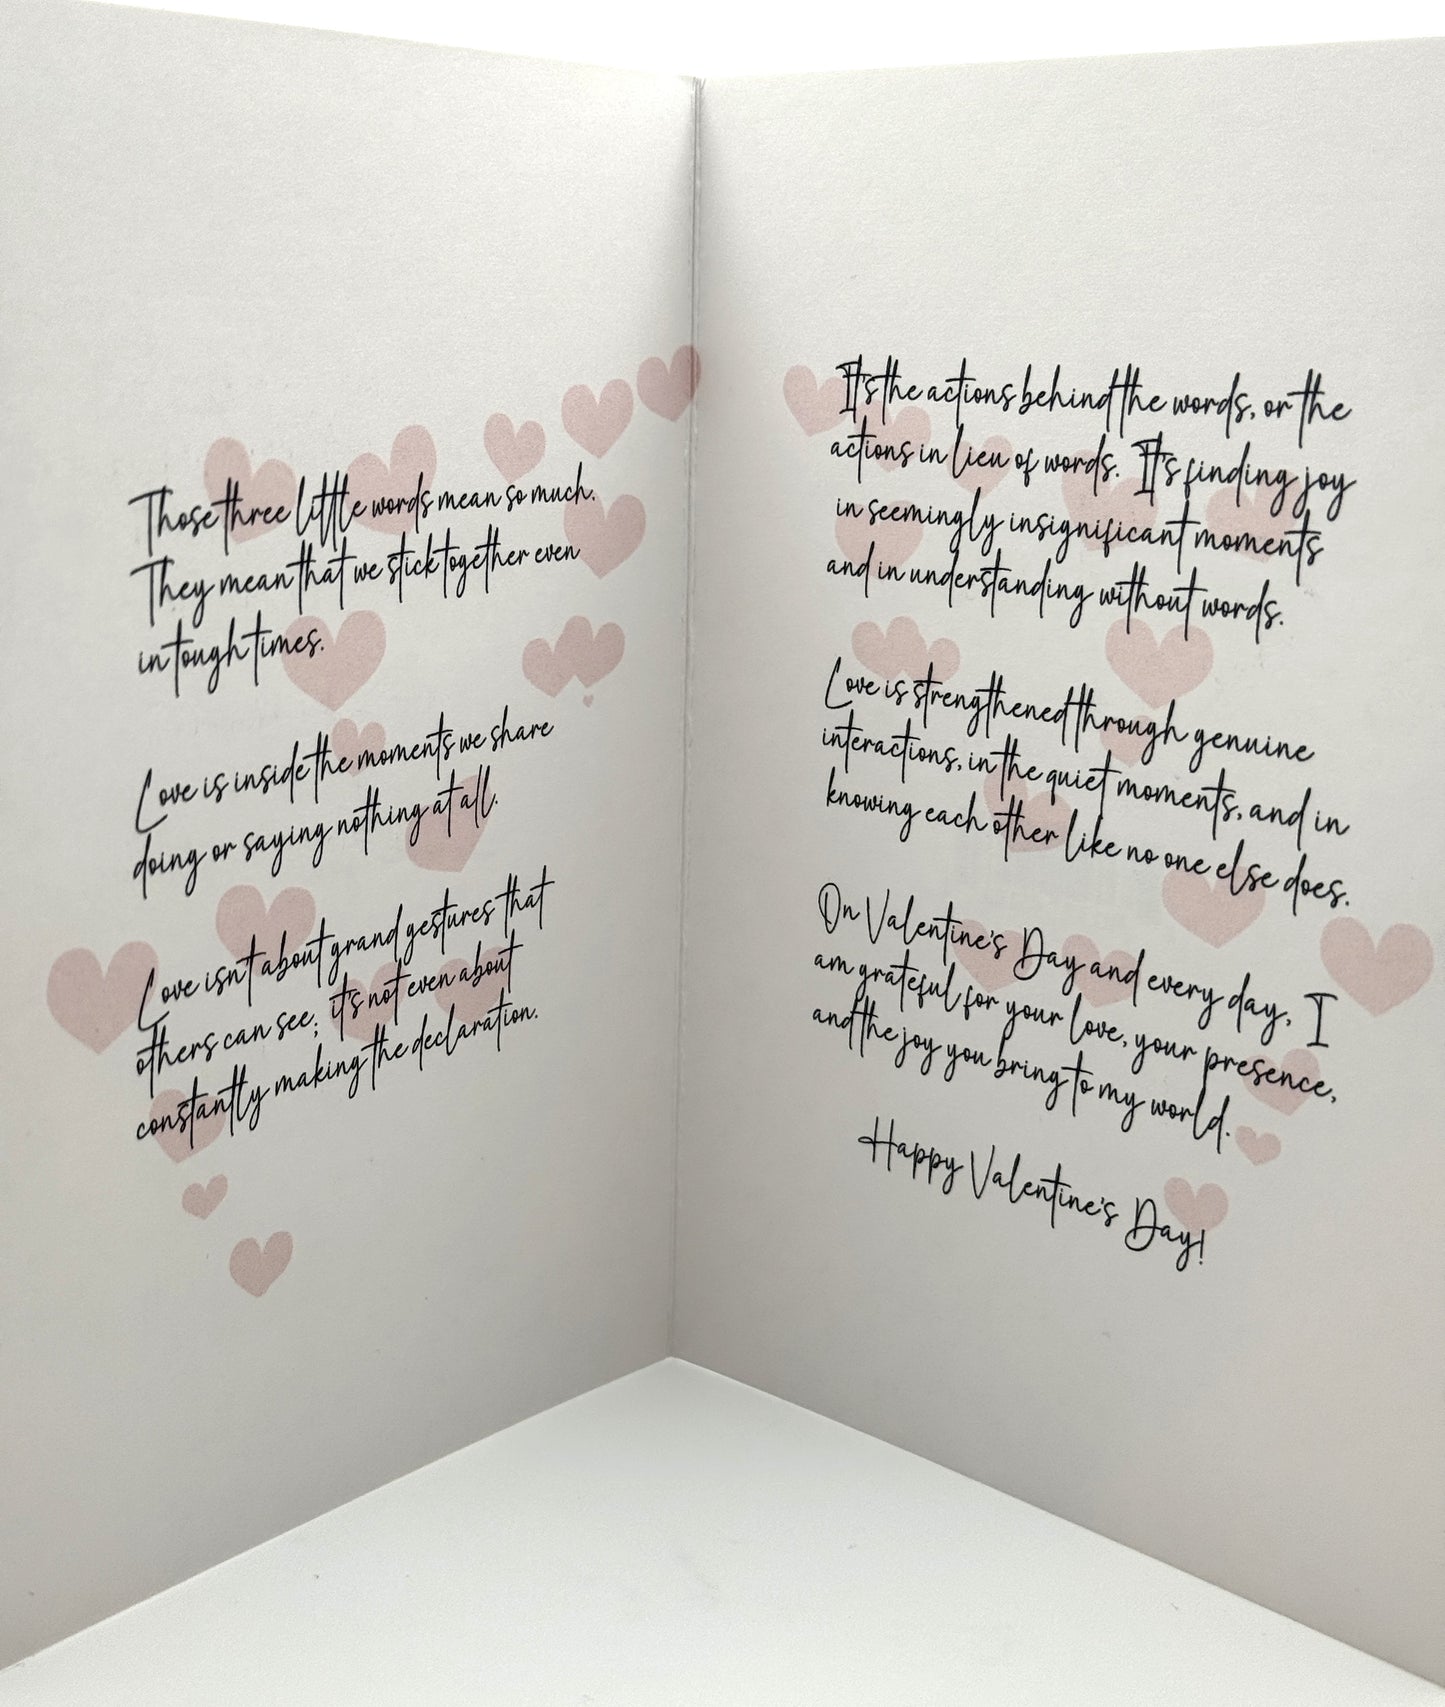 Those three little words mean so much.
They mean that we stick together even
in tough times.
Love is inside the moments we share
doing or saying nothing at all.
Love isn't about grand gestures that
others can see; it's not even about
constantly making the declaration.
It's the actions behind the words, or the
actions in lieu of words. It's finding joy
in seemingly insignificant moments
and in understanding without words.
Love is strengthened through genuine
interactions, in the quiet moments, and in
knowing each other like no one else does.
On Valentine's Day and every day, I
am grateful for your love, your presence,
and the joy you bring to my world.
Happy Valentine's Day!